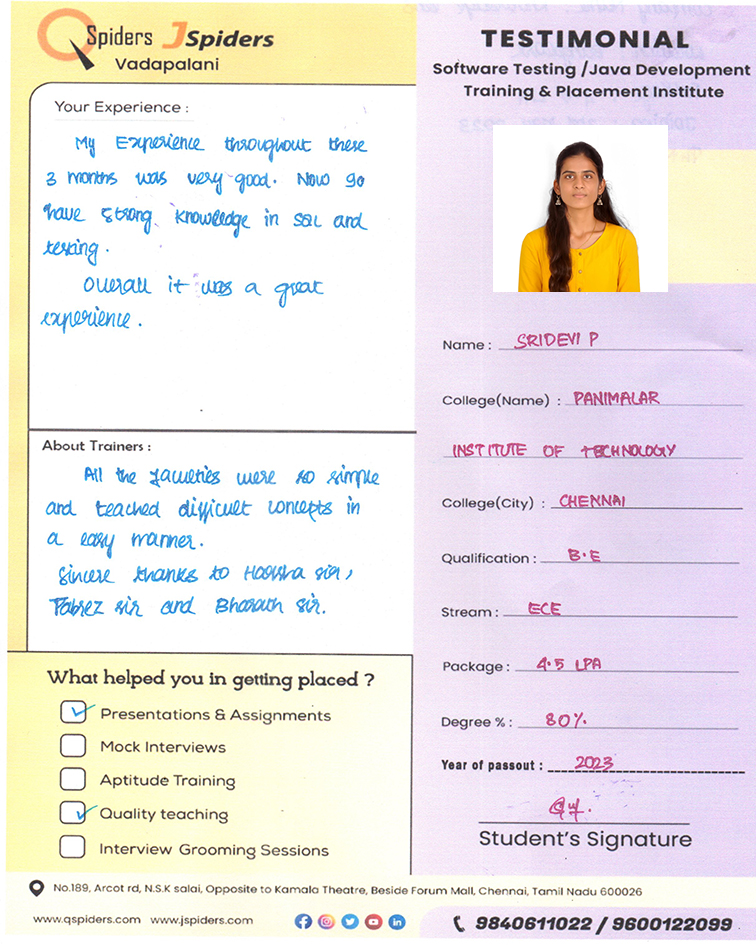 QSpiders JSpiders
Vadapalani
Your Experience :
My Experience throughout these
3 months was very good. Now go
have strong knowledge in SQL and
testing.
Overall it was a great
experience.
About Trainers :
All the faculties were so simple
and teached difficult concepts in
a easy manner.
Sincere thanks to sir,
Tabrez sir and Bharath sir.
What helped you in getting placed ?
Presentations & Assignments
Mock Interviews
Aptitude Training
Quality teaching
Interview Grooming Sessions
TESTIMONIAL
Software Testing /Java Development
Training & Placement Institute
Name : SRIDEVI P
College(Name) : PANIMALAR
INSTITUTE OF TECHNOLOGY
College(City) : CHENNAI
Qualification : B.E
Stream : ECE
Package : 4.5 LPA
Degree % : 80%
Year of passout : 2023
Student's Signature
No.189, Arcot rd, N.S.K salai, Opposite to Kamala Theatre, Beside Forum Mall, Chennai, Tamil Nadu 600026
www.qspiders.com www.jspiders.com
9840611022 / 9600122099